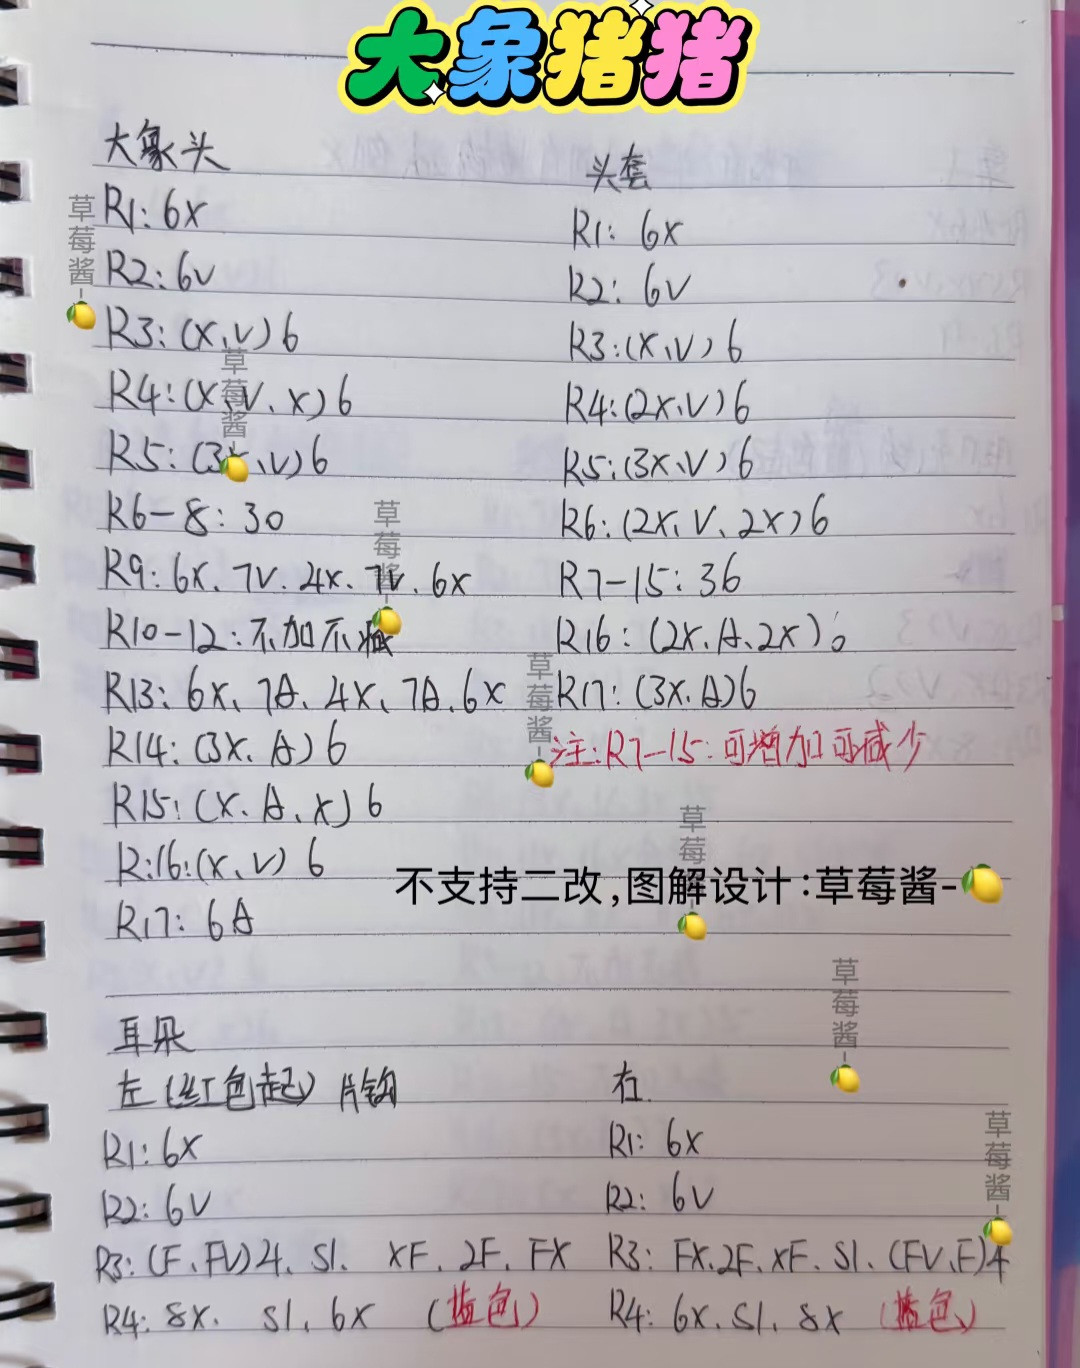 大象猪猪
大象头
R1: 6X
R2: 6V
R3: (X、V) 6
R4: (X、V、X) 6
R5: (3X、V) 6
R6-8: 30
R9: 6X、7V、4X、7V、6X
R10-12: 不加不减
R13: 6X、7A、4X、7A、6X
R14: (3X、A) 6
R15: (X、A、X) 6
R:16:(X、V) 6
R17: 6A
头套
R1: 6X
R2: 6V
R3: (X、V) 6
R4: (2X、V) 6
R5: (3X、V) 6
R6: (2X、V、2X) 6
R7-15: 36
R16: (2X、A、2X) 6
R17: (3X、A) 6
注: R7-15: 可增加可减少
不支持二改,图解设计:草莓酱-🍋
耳朵
左 (红色起) 片钩
R1: 6X
R2: 6V
R3: (F、FV) 4、Sl、XF、2F、FX
R4: 8X、Sl、6X (蓝色)
右
R1: 6X
R2: 6V
R3: FX、2F、XF、Sl、(FV、F) 4
R4: 6X、Sl、8X (蓝色)
草莓酱-🍋
草莓酱-🍋
草莓酱-🍋
草莓酱-🍋
草莓
草莓酱-🍋
草莓酱-🍋